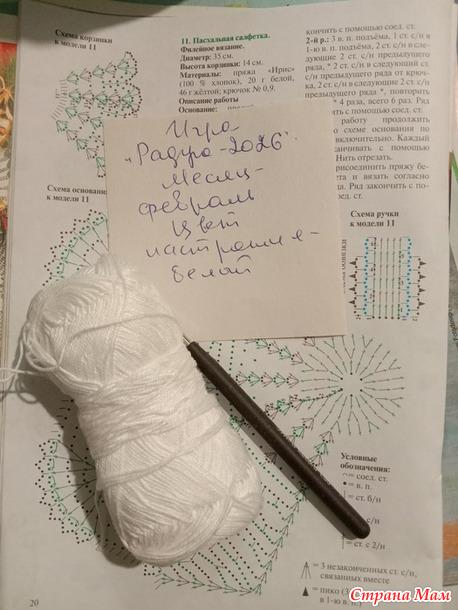 Схема корзинки
к модели 11
11. Пасхальная салфетка.
Филейное вязание.
Диаметр: 35 см.
Высота корзинки: 14 см.
Материалы: пряжа «Ирис»
(100 % хлопок), 20 г белой,
46 г жёлтой; крючок № 0,9.
Описание работы
Основание:
кончить с помощью соед. ст.
2-й р.: 3 в. п. подъёма, 1 ст. с/н в
1-ю в. п. подъёма, 2 ст. с/н в сле-
дующие 2 ст. с/н предыдущего
ряда, * 2 ст. с/н в следующий ст.
с/н предыдущего ряда от крюч-
ка, 2 ст. с/н в следующие 2 ст. с/н
предыдущего ряда *, повторить
* 4 раза, всего 6 раз. Ряд
с помощью соед. ст.
работу продолжить
схеме основания по
включительно. Каждый
канчивать с помощью
Нить отрезать.
присоединить пряжу бе-
та и вязать согласно
да. Ряд закончить с по-
ед. ст.
Игра
„Радуга-2026".
Месяц-
февраль
Цвет
настроения-
белой
Схема основания
к модели 11
Схема ручки
к модели 11
Условные
обозначения:
= соед. ст.
= в. п.
= ст. б/н
= ст. с 2/н
= 3 незаконченных ст. с/н,
связанных вместе
= пико (3
в 1-ю в. п.)
20
Страна Мам